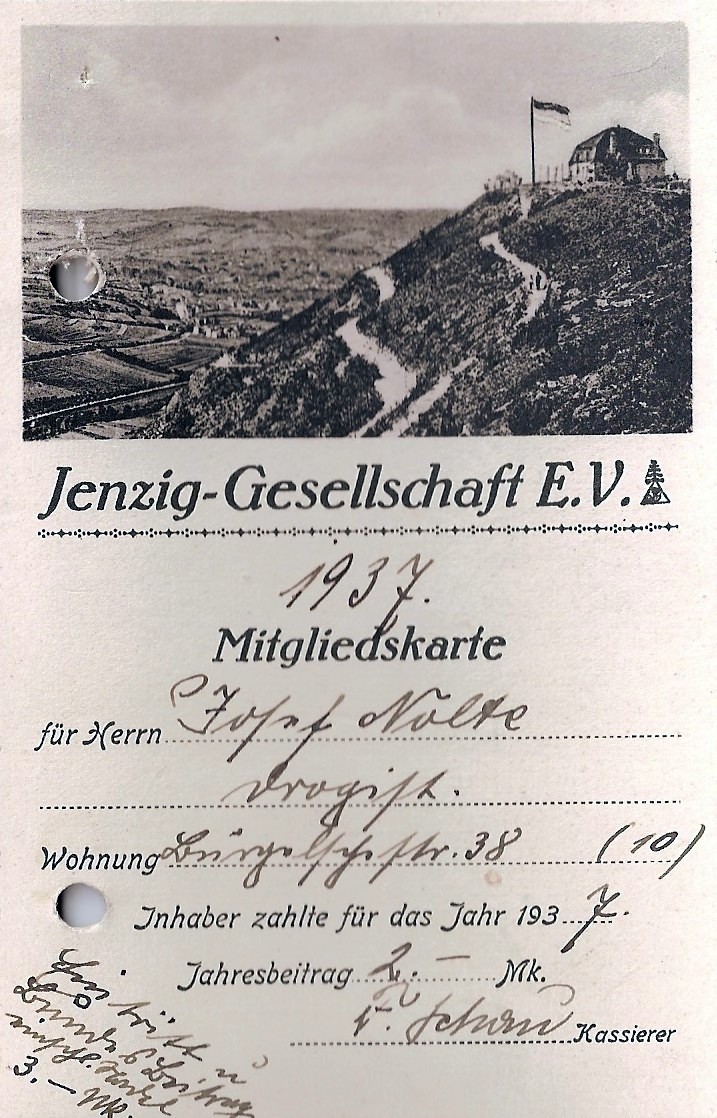 Jenzig-Gesellschaft E.V.
1937.
Mitgliedskarte
für Herrn Josef Nolte
Drogist.
Wohnung Bürgelschestr. 38 (10)
Inhaber zahlte für das Jahr 1937.
Jahresbeitrag 2.- Mk.
Kassierer
3.- Mk.